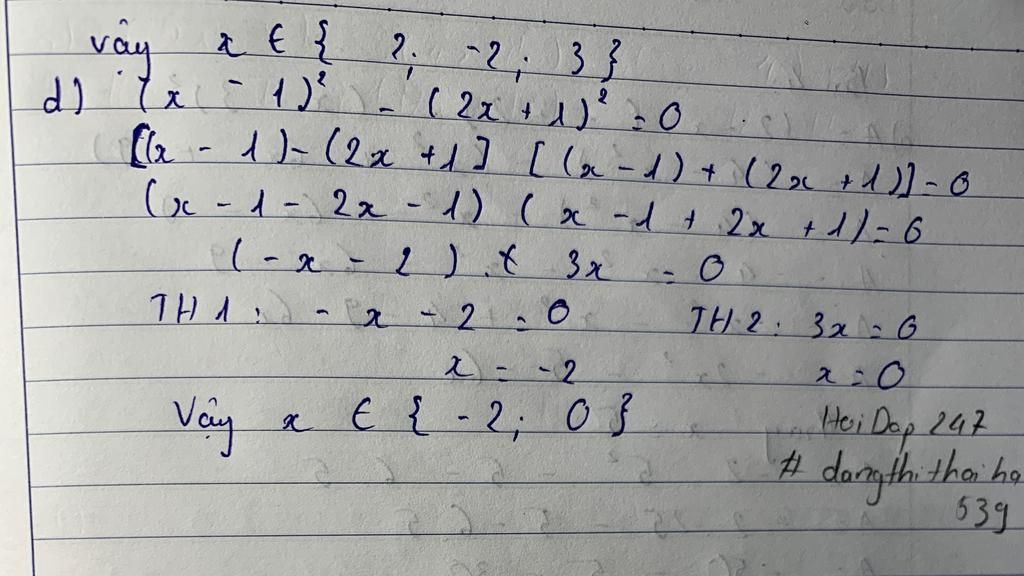 vậy x ∈ { 2; -2; 3 }
d) (x - 1)² - (2x + 1)² = 0
[(x - 1) - (2x + 1] [(x - 1) + (2x + 1)] = 0
(x - 1 - 2x - 1) (x - 1 + 2x + 1) = 0
(-x - 2) . 3x = 0
TH1: -x - 2 = 0 TH2: 3x = 0
x = -2 x = 0
Vậy x ∈ { -2; 0 }
HoiDap 247
# dangthithaiha
539